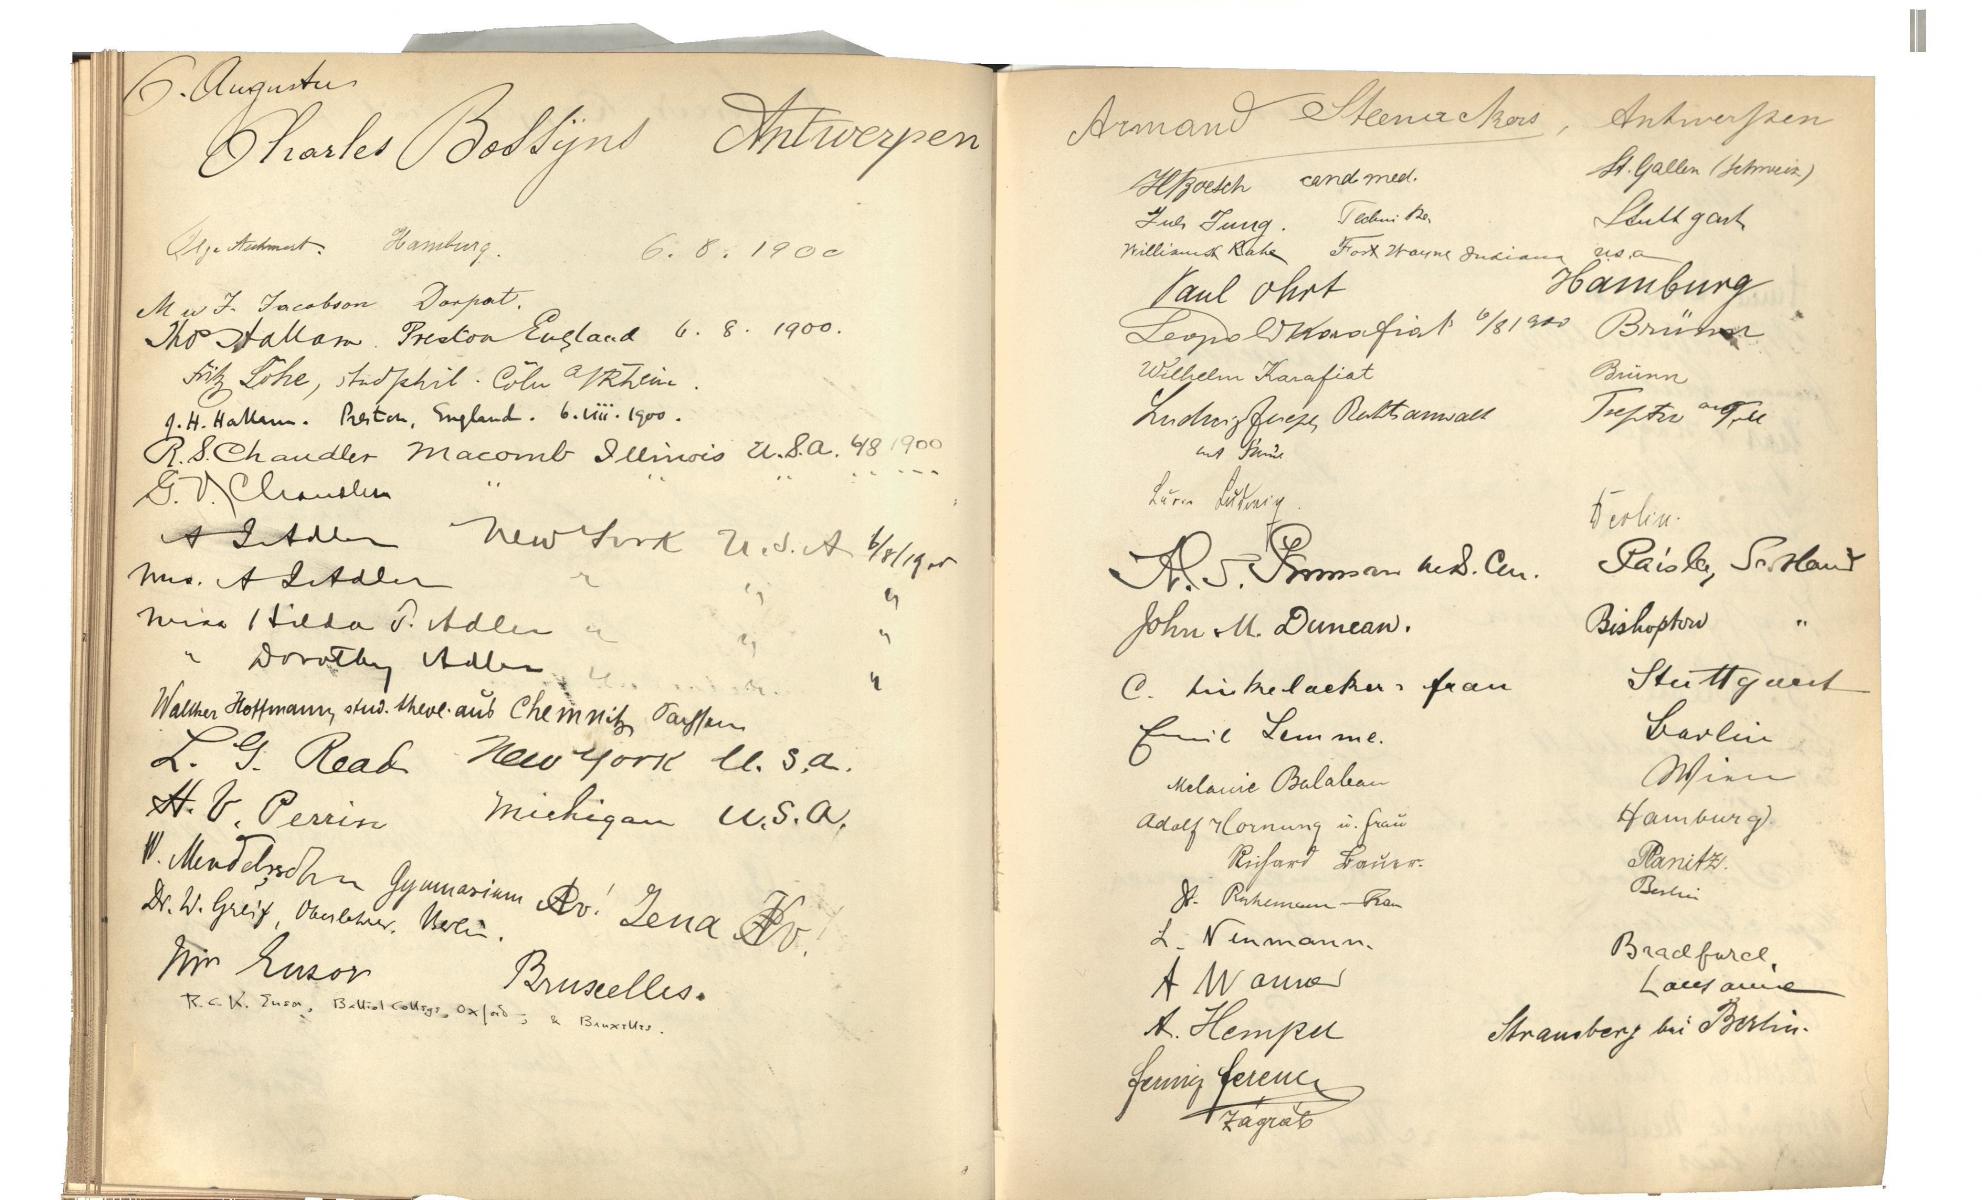 6. Augustus
Charles Bossÿns Antwerpen
Olga Hamburg. 6. 8. 1900
M u F. Jacobson Dorpat.
Thos Hallam. Preston England 6. 8. 1900.
Fritz Löhe, stud phil. Cöln a/Rhein.
J. H. Hallam. Preston, England. 6. viii. 1900.
R. S. Chandler Macomb Illinois U.S.A. 6/8 1900
G. V. Chandler " " " " "
A I Adler New York U.S.A 6/8/1900
Mrs. A I Adler " " "
Miss Hilda S. Adler " " "
" Dorothy Adler " "
Walther Hoffmann, stud. theol. aus Chemnitz Sachsen
L. G. Read New York U. S. A.
H. V. Perrin Michigan U.S.A.
W. Mendelssohn Gymnasium Jena
Dr. W. Greif, Oberlehrer. Berlin.
Ensor Bruxelles.
R. C. K. Ensor, Balliol College, Oxford; & Bruxelles.
Armand Steenackers, Antwerpen
H Boesch cand. med. St. Gallen (Schweiz)
Jul. Jung. Techniker Stuttgart
Fort Wayne Indiana U.S.A
Paul Ohrt Hamburg
Leopold Karafiat 6/8 1900 Brünn
Wilhelm Karafiat Brünn
Ludwig Rechtsanwalt
Ludwig. Berlin.
A. S. Paisley, Scotland
John M. Duncan. Bishopton "
C. Dinkelacker & frau Stuttgart
Emil Lemme. Berlin
Melanie Balaban Wien
Adolf Hornung u. frau Hamburg
Richard Bauer. Planitz.
Frau Berlin
L. Neumann. Bradford.
A Lausanne
A. Hempel Strausberg bei Berlin.
ferenc
Zágráb